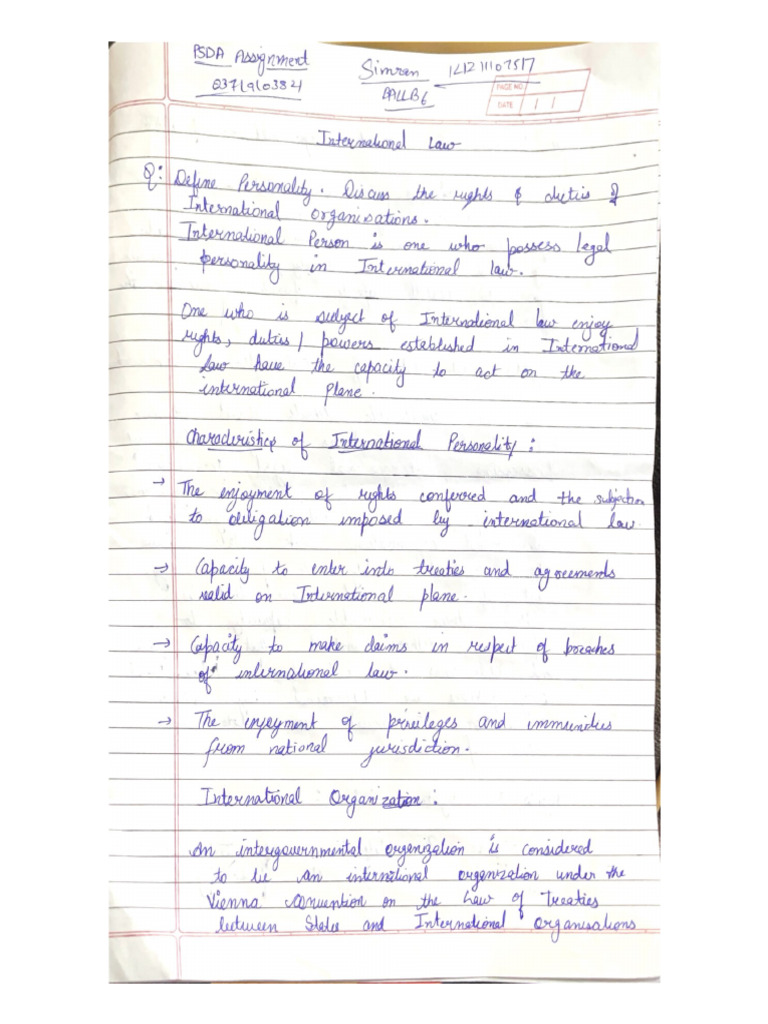 PSDA Assignment
Simran
03719103821
BALLB 6
PAGE NO.
DATE
International Law
Q: Define Personality. Discuss the rights & duties of
International organisations.
International Person is one who possess legal
personality in International law.
One who is subject of International law enjoy
rights, duties / powers established in International
law have the capacity to act on the
international plane.
Characteristics of International Personality:
→ The enjoyment of rights conferred and the subjection
to obligation imposed by international law
→ Capacity to enter into treaties and agreements
valid on International plane.
→ Capacity to make claims in respect of breaches
of international law.
→ The enjoyment of privileges and immunities
from national jurisdiction.
International Organization:
An intergovernmental organization is considered
to be an international organization under the
Vienna Convention on the Law of Treaties
between States and International Organisations